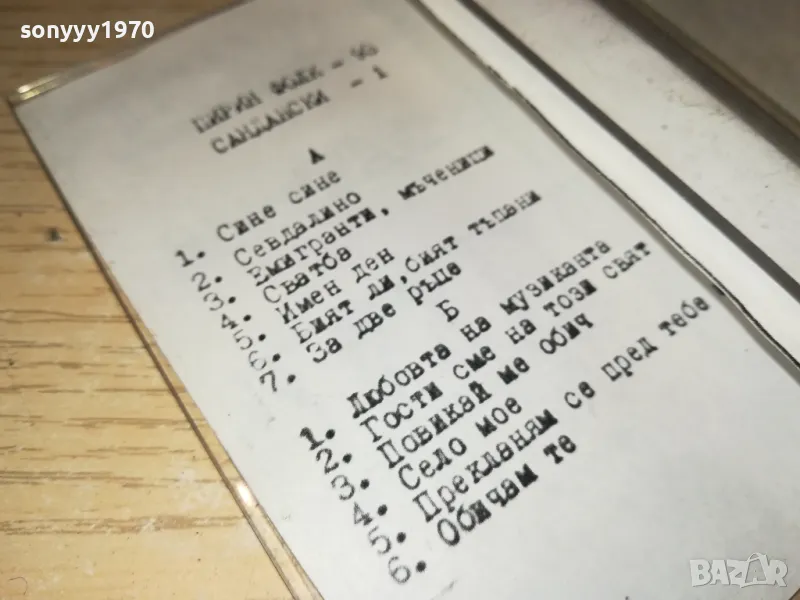 sonyyy1970
ПИРИН ФОЛК - 93
САНДАНСКИ - 1
А
1. Сине сине
2. Севдалино
3. Емигранти, мъченици
4. Сватба
5. Имен ден
6. Бият ли,бият тъпани
7. За две ръце
Б
1. Любовта на музиканта
2. Гости сме на този свят
3. Повикай ме обич
4. Село мое
5. Прекланям се пред тебе
6. Обичам те
BAZAR